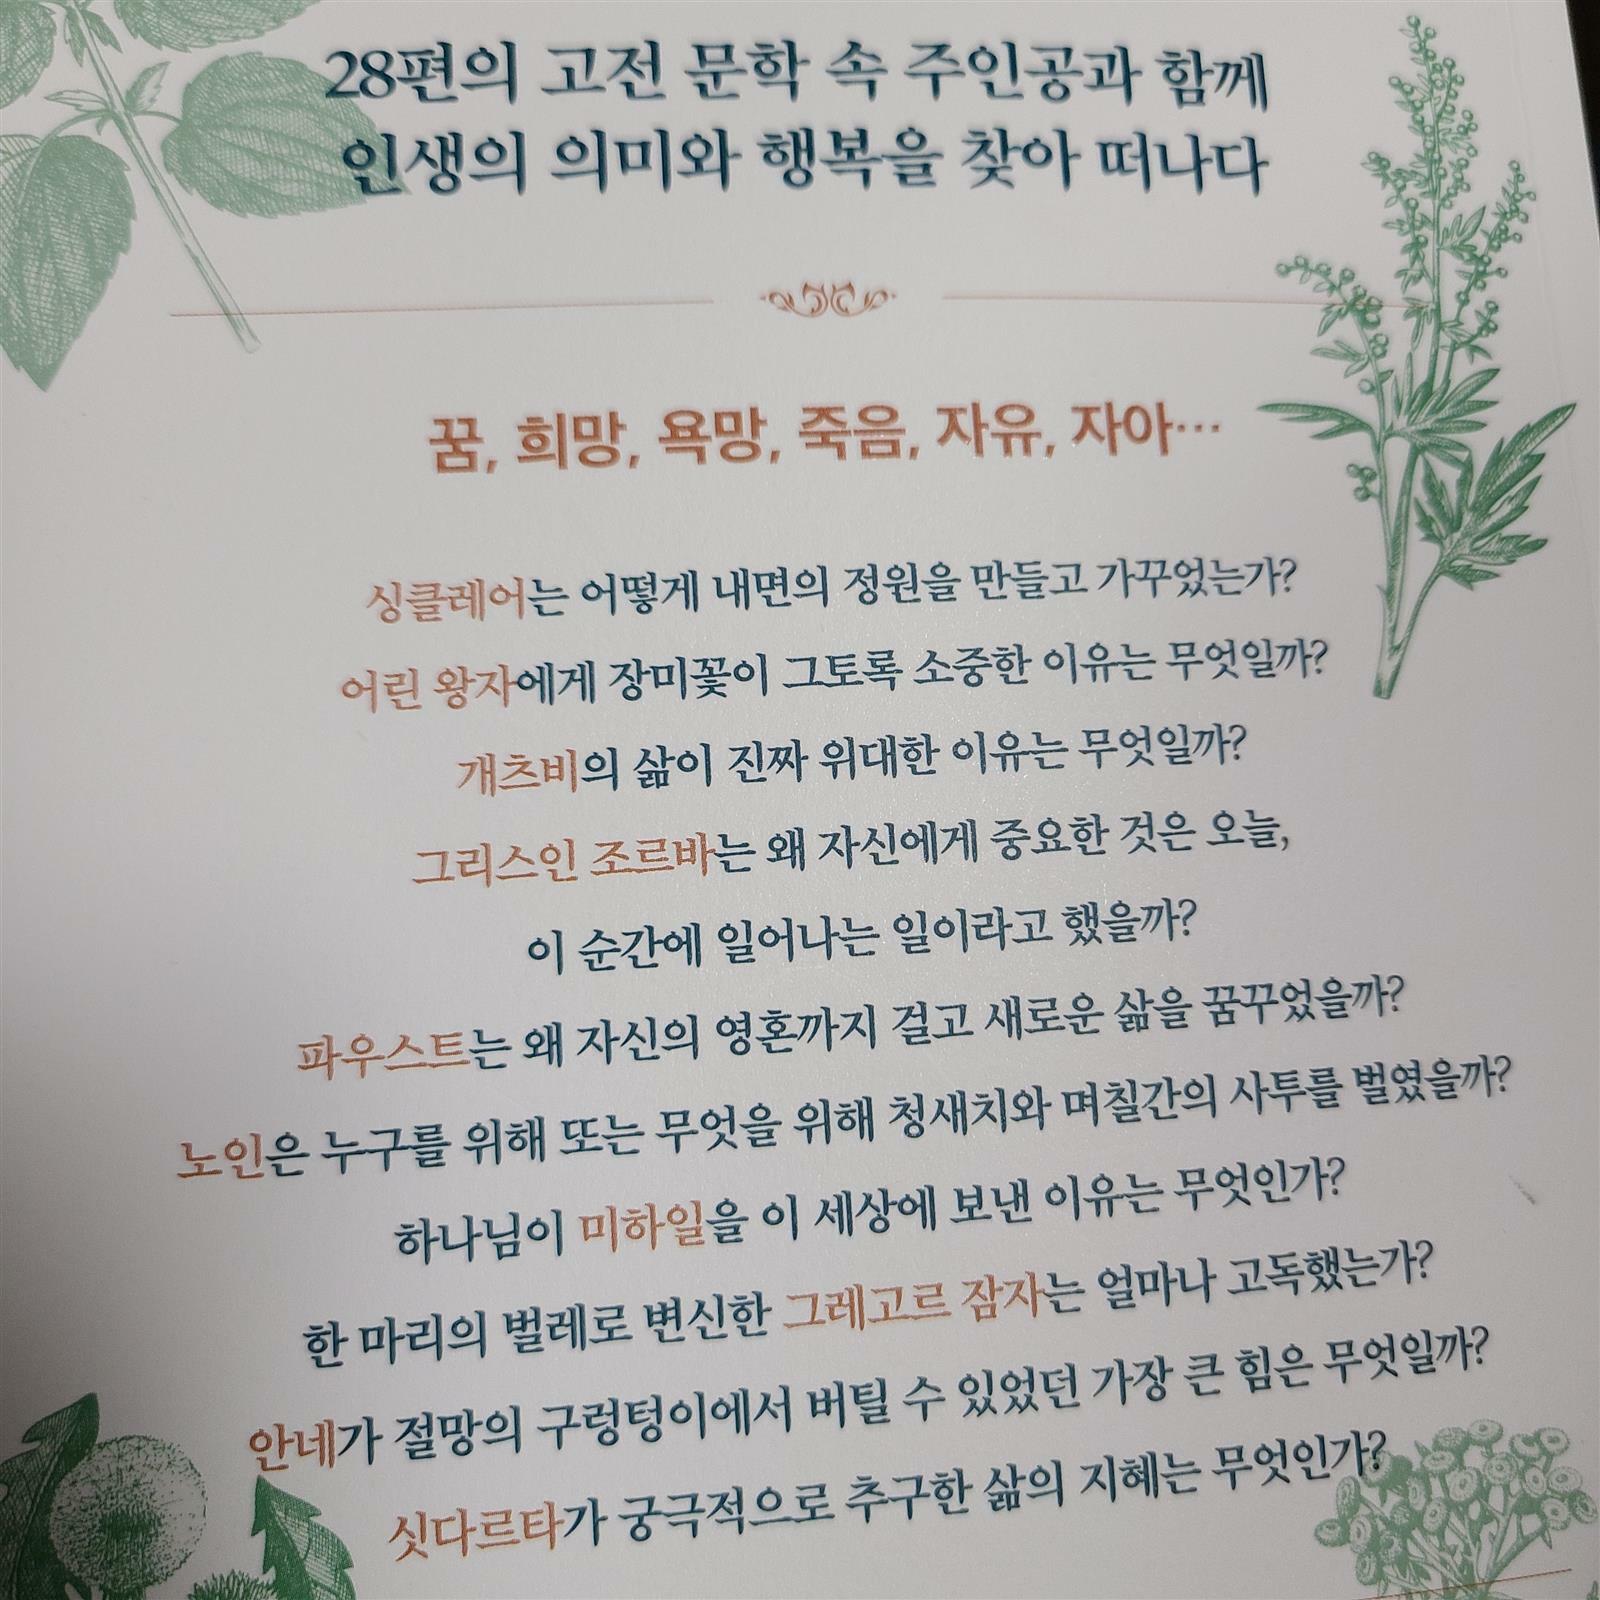 28편의 고전 문학 속 주인공과 함께
인생의 의미와 행복을 찾아 떠나다
꿈, 희망, 욕망, 죽음, 자유, 자아…
싱클레어는 어떻게 내면의 정원을 만들고 가꾸었는가?
어린 왕자에게 장미꽃이 그토록 소중한 이유는 무엇일까?
개츠비의 삶이 진짜 위대한 이유는 무엇일까?
그리스인 조르바는 왜 자신에게 중요한 것은 오늘,
이 순간에 일어나는 일이라고 했을까?
파우스트는 왜 자신의 영혼까지 걸고 새로운 삶을 꿈꾸었을까?
노인은 누구를 위해 또는 무엇을 위해 청새치와 며칠간의 사투를 벌였을까?
하나님이 미하일을 이 세상에 보낸 이유는 무엇인가?
한 마리의 벌레로 변신한 그레고르 잠자는 얼마나 고독했는가?
안네가 절망의 구렁텅이에서 버틸 수 있었던 가장 큰 힘은 무엇일까?
싯다르타가 궁극적으로 추구한 삶의 지혜는 무엇인가?